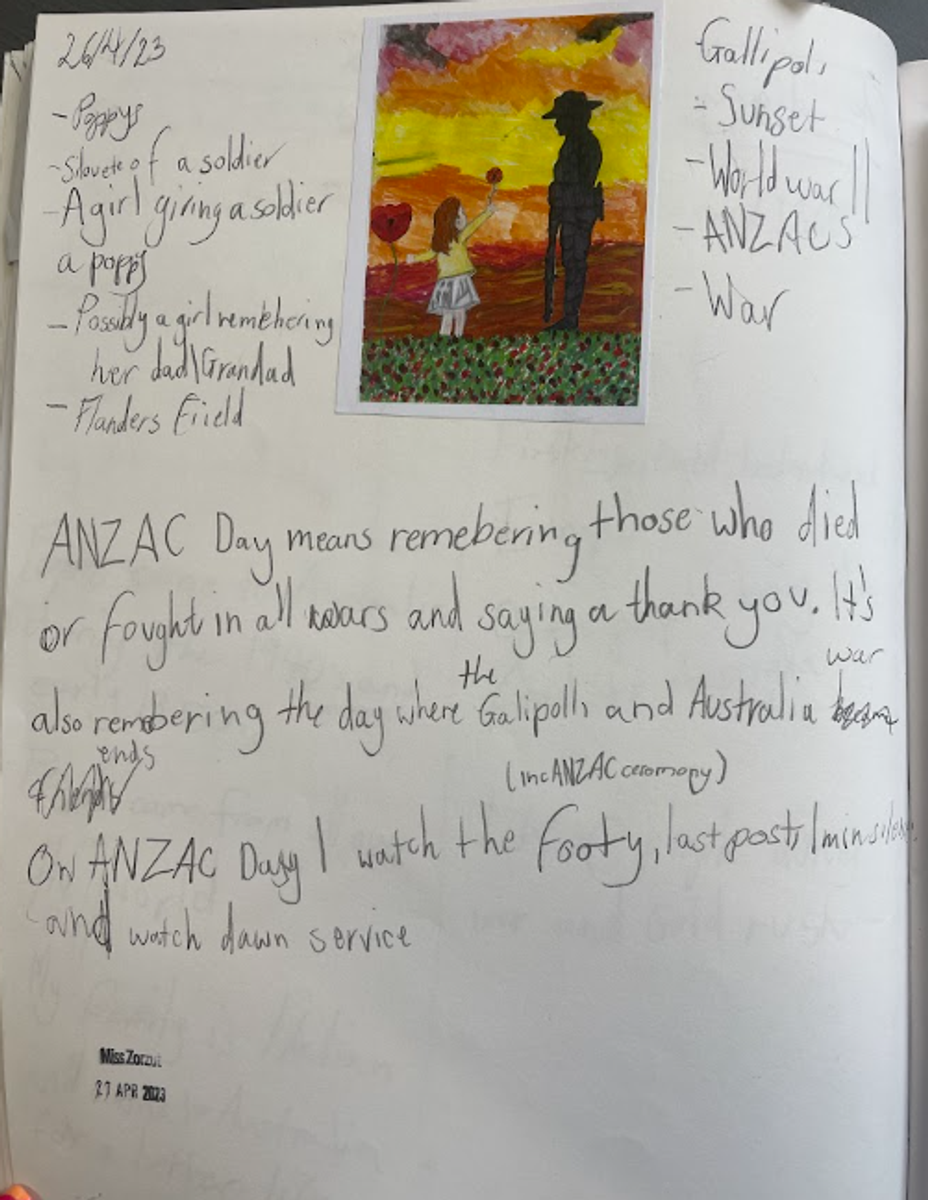 26/4/23
- Poppys
- Silouete of a soldier
- A girl giving a soldier
a poppy
- Possibly a girl remembering
her dad\Grandad
- Flanders Field
Gallipoli
- Sunset
- World war II
- ANZACS
- War
ANZAC Day means remebering those who died
or fought in all wars and saying a thank you. It's
the
war
also remebering the day where Galipolli and Australia
ends
(inc ANZAC ceromony)
On ANZAC Day I watch the footy, last post, 1 min silence
and watch dawn service
Miss Zorzut
27 APR 2023